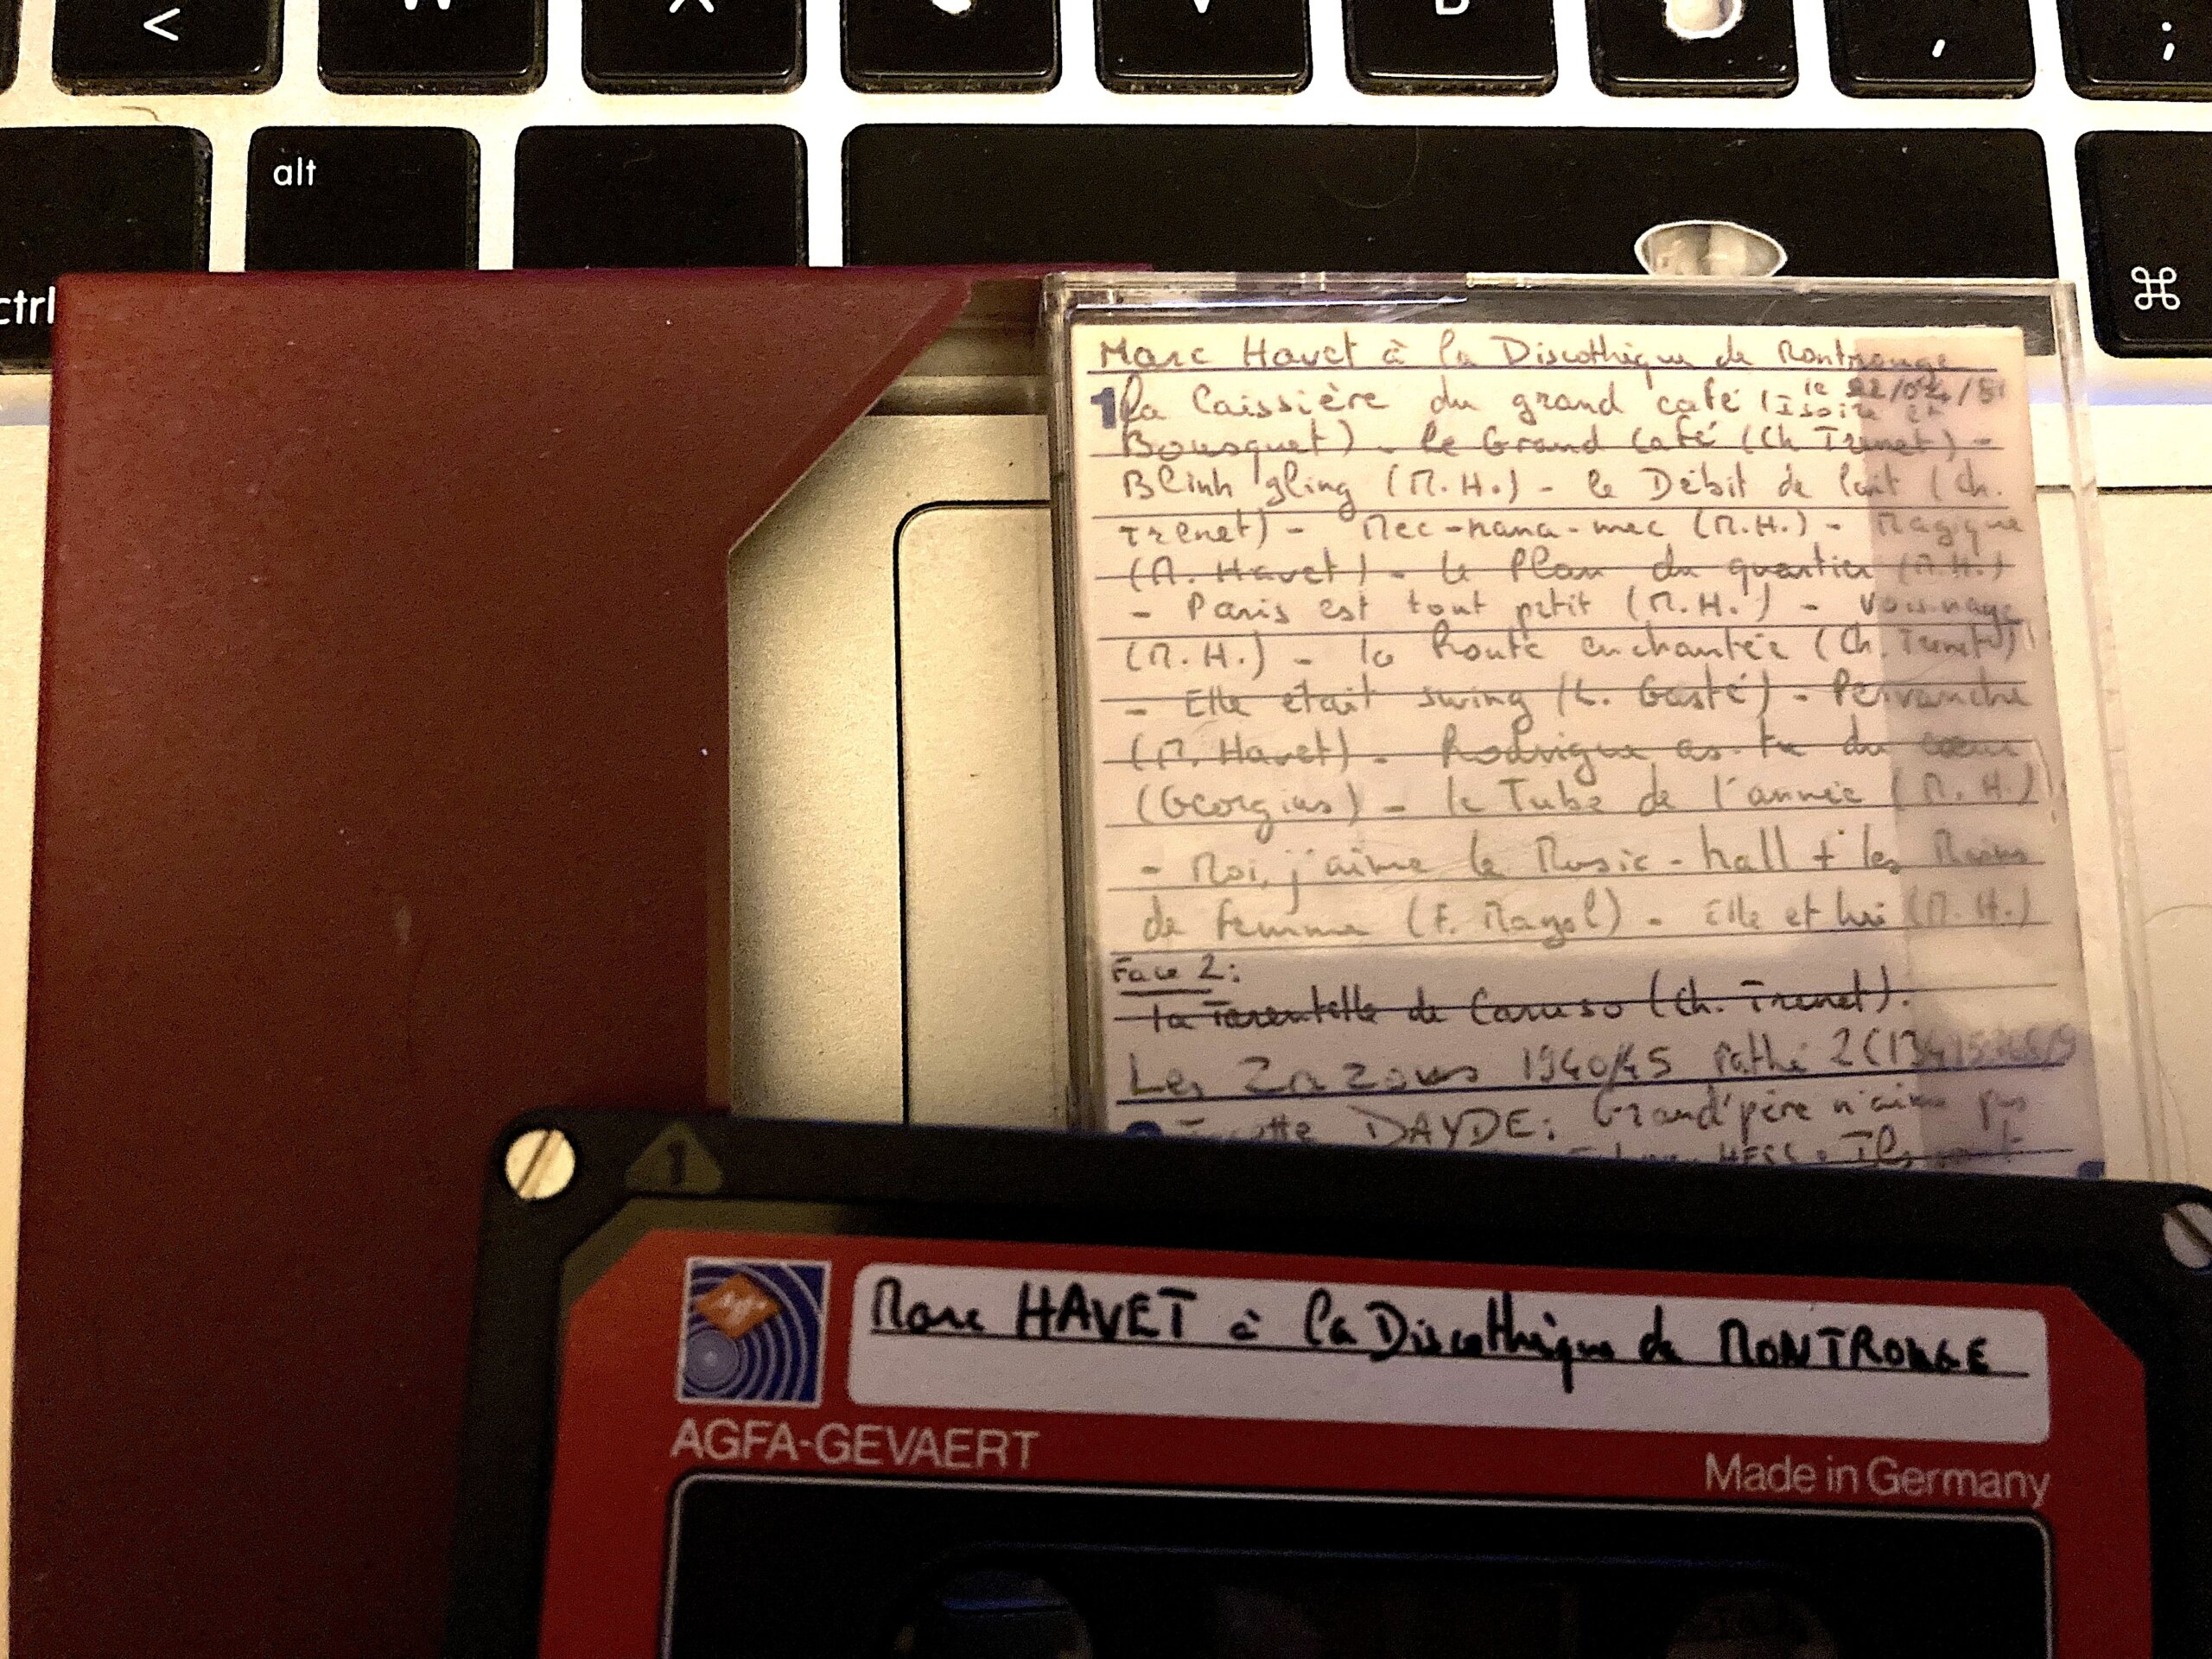 <
alt
ctrl
⌘
,
;
Marc Havet à la Discothèque de Montrouge
le 22/04/81
1 la Caissière du grand café (Isoire et
Bousquet) - le Grand Café (Ch Trenet) -
Blinh gling (M.H.) - le Débit de lait (Ch.
Trenet) - Mec-nana-mec (M.H.) - Magique
(M. Havet) - le Plan du quartier (M.H.)
- Paris est tout petit (M.H.) - Voisinage
(M.H.) - la Route enchantée (Ch. Trenet)
- Elle était swing (L. Gasté) - Pervanche
(M. Havet) - Rodrigue as-tu du cœur
(Georgius) - le Tube de l'année (M.H.)
- Moi, j'aime le Music-hall + les Mains
de femme (F. Mayol) - Elle et lui (M.H.)
Face 2:
la Tarentelle de Caruso (Ch. Trenet).
Les Zazous 1940/45 Pathé
DAYDE: Grand'père n'aime pas
HESS: Ils
1
Marc HAVET à la Discothèque de MONTROUGE
AGFA-GEVAERT
Made in Germany